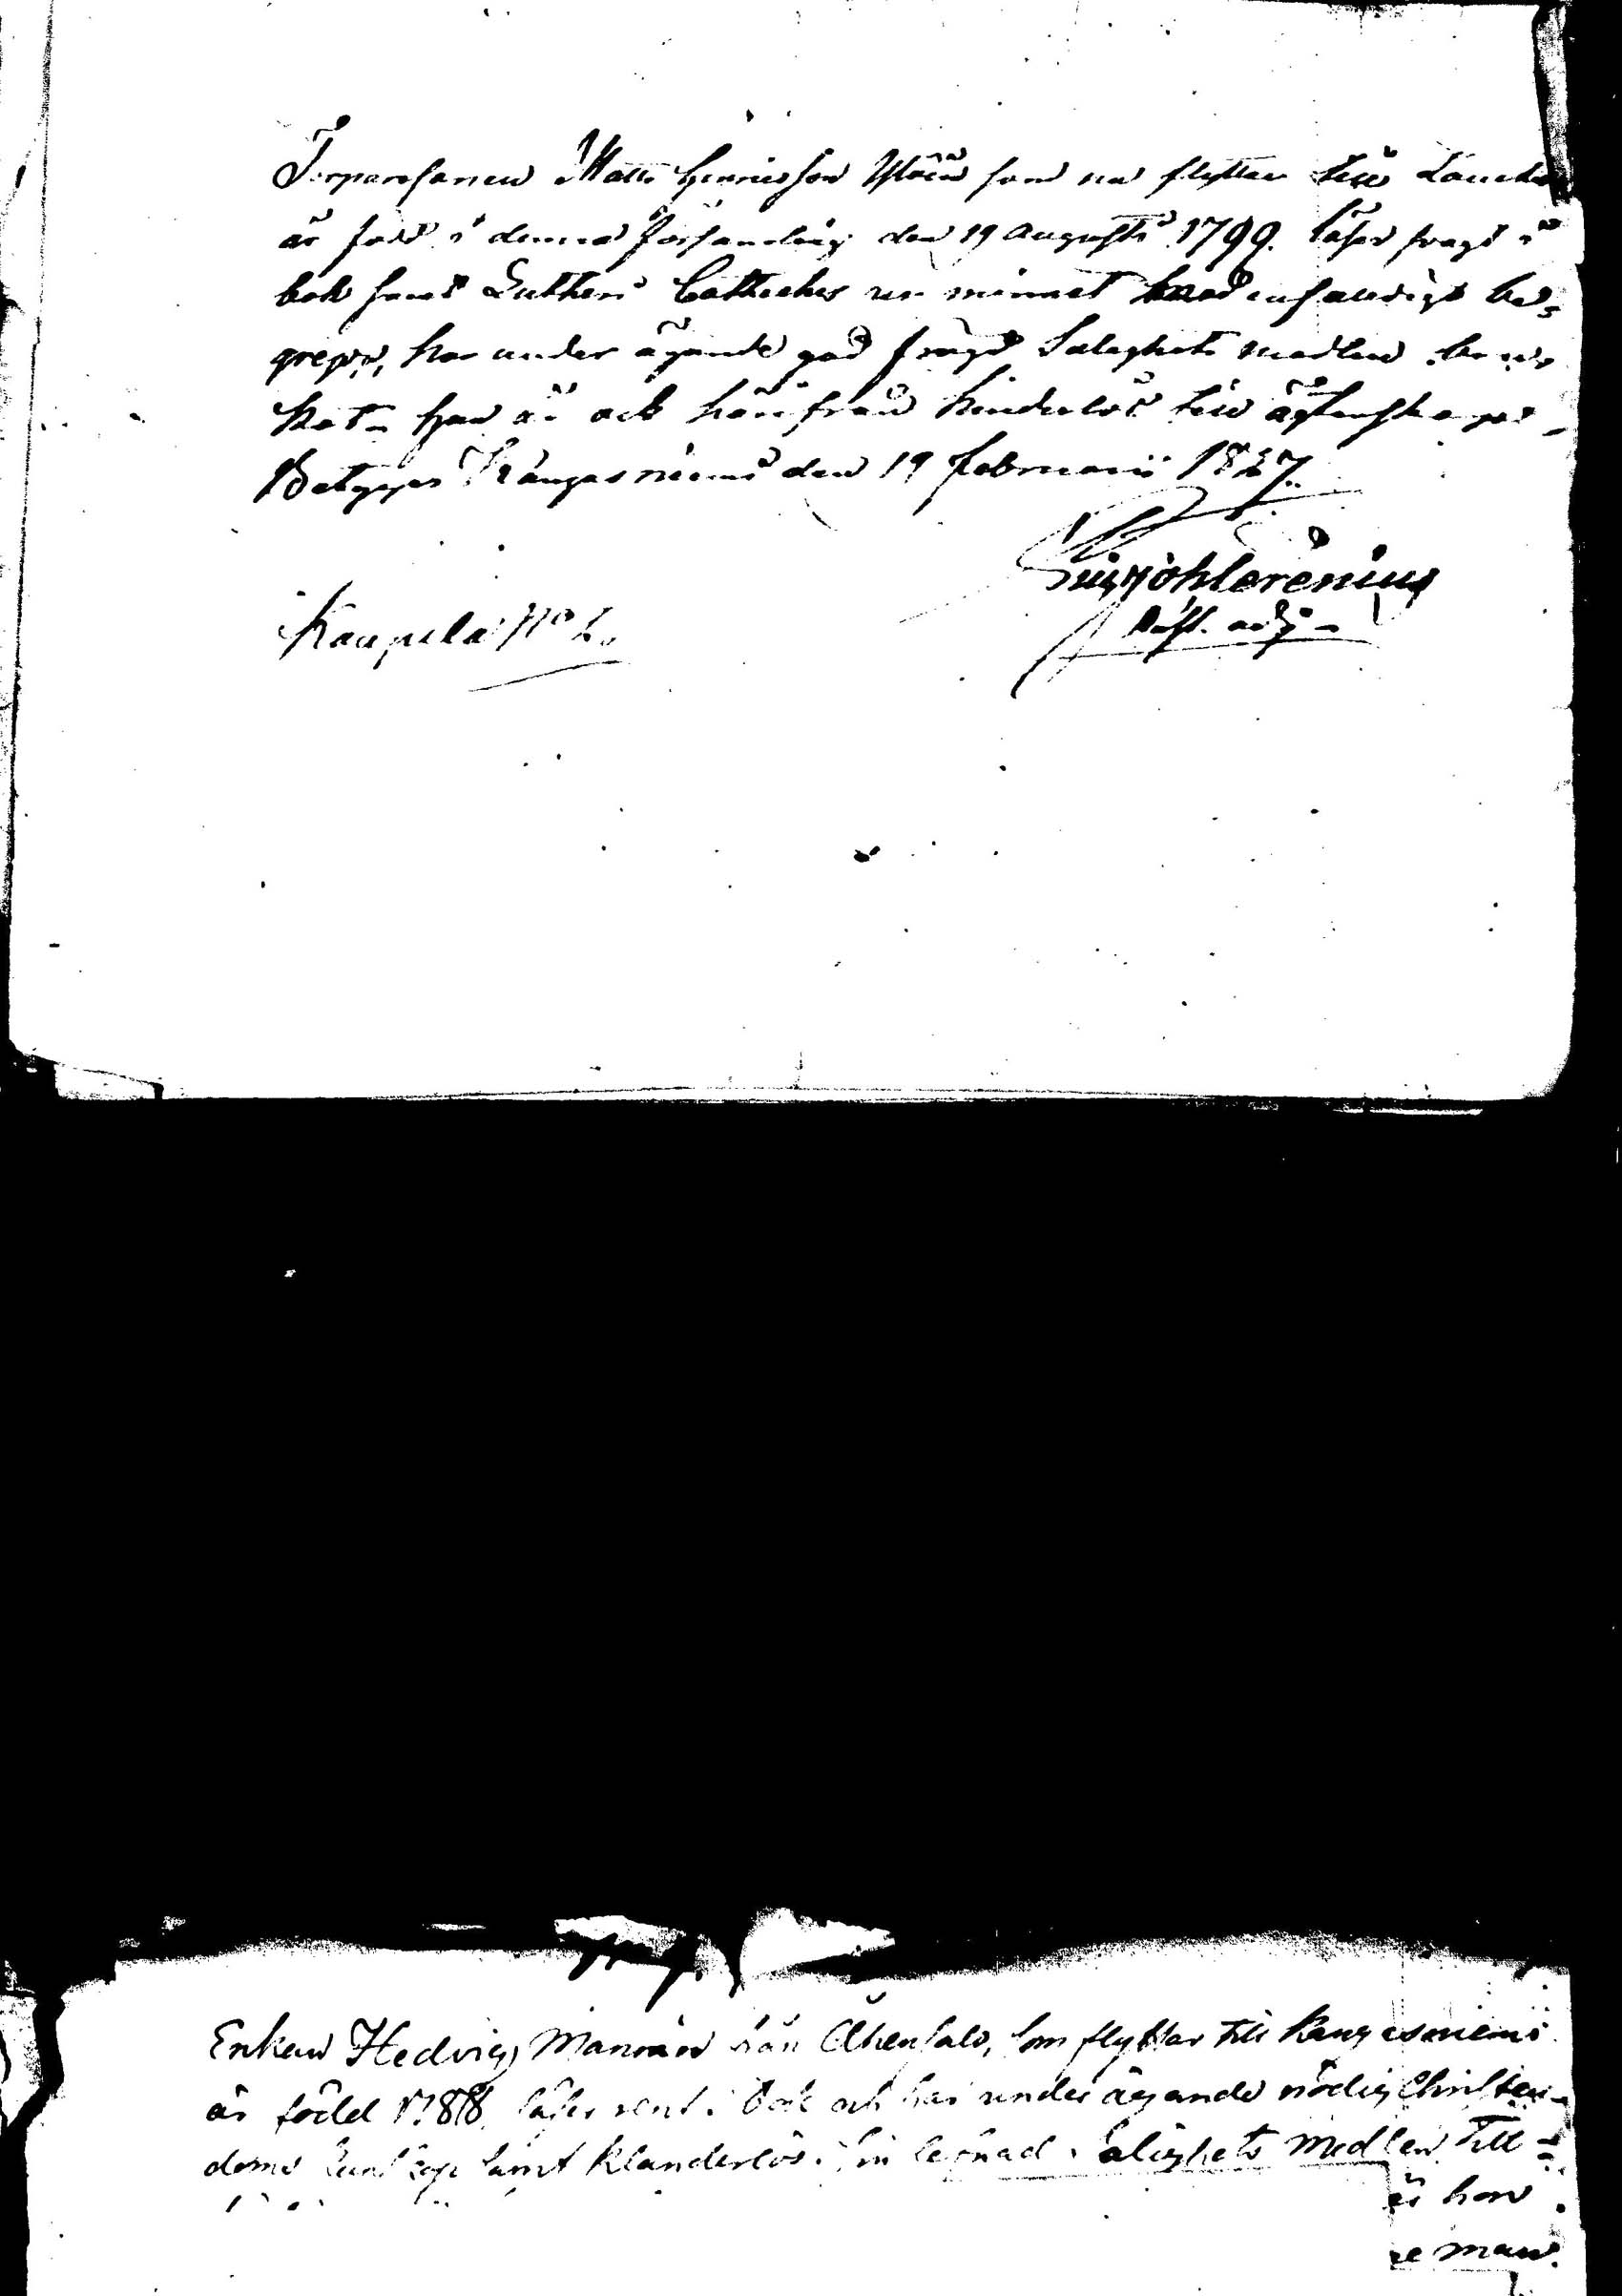 Torparesonen Matts Henricsson Ylöin som nu flyttar till Laucka
är född i denna församling den 19 Augusti 1799. läser svagt i
bok samt Lutheri Catheches ur minnet med enfaldigt be-
grepp, har under ägande god frägd Salighets medlen bru-
kat. Han är ock härifrån hinderlös till äghtenskap.
Betygar Kangasniemi den 19 Februarii 1827.
Kaupila No 2.
adj.
Enkan Hedvig Manninen från Ahensalo, som flyttar till Kangasniemi
är född 1788 läser rent i bok och har under ägande nödig Christen-
doms kunskap samt klanderlös i sin lefnad Salighets Medlen till
är hon
man.